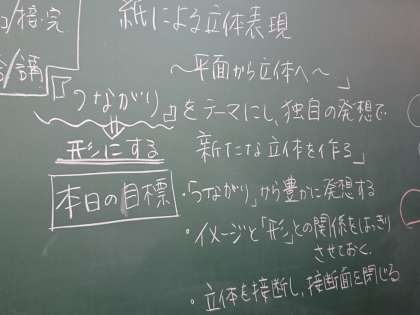 紙による立体表現
~平面から立体へ~」
『つながり』をテーマにし、独自の発想で
形にする
新たな立体を作る」
本日の目標
・「つながり」から豊かに発想する
・イメージと「形」との関係をはっきり
させておく。
・立体を接断し、接断面を閉じる